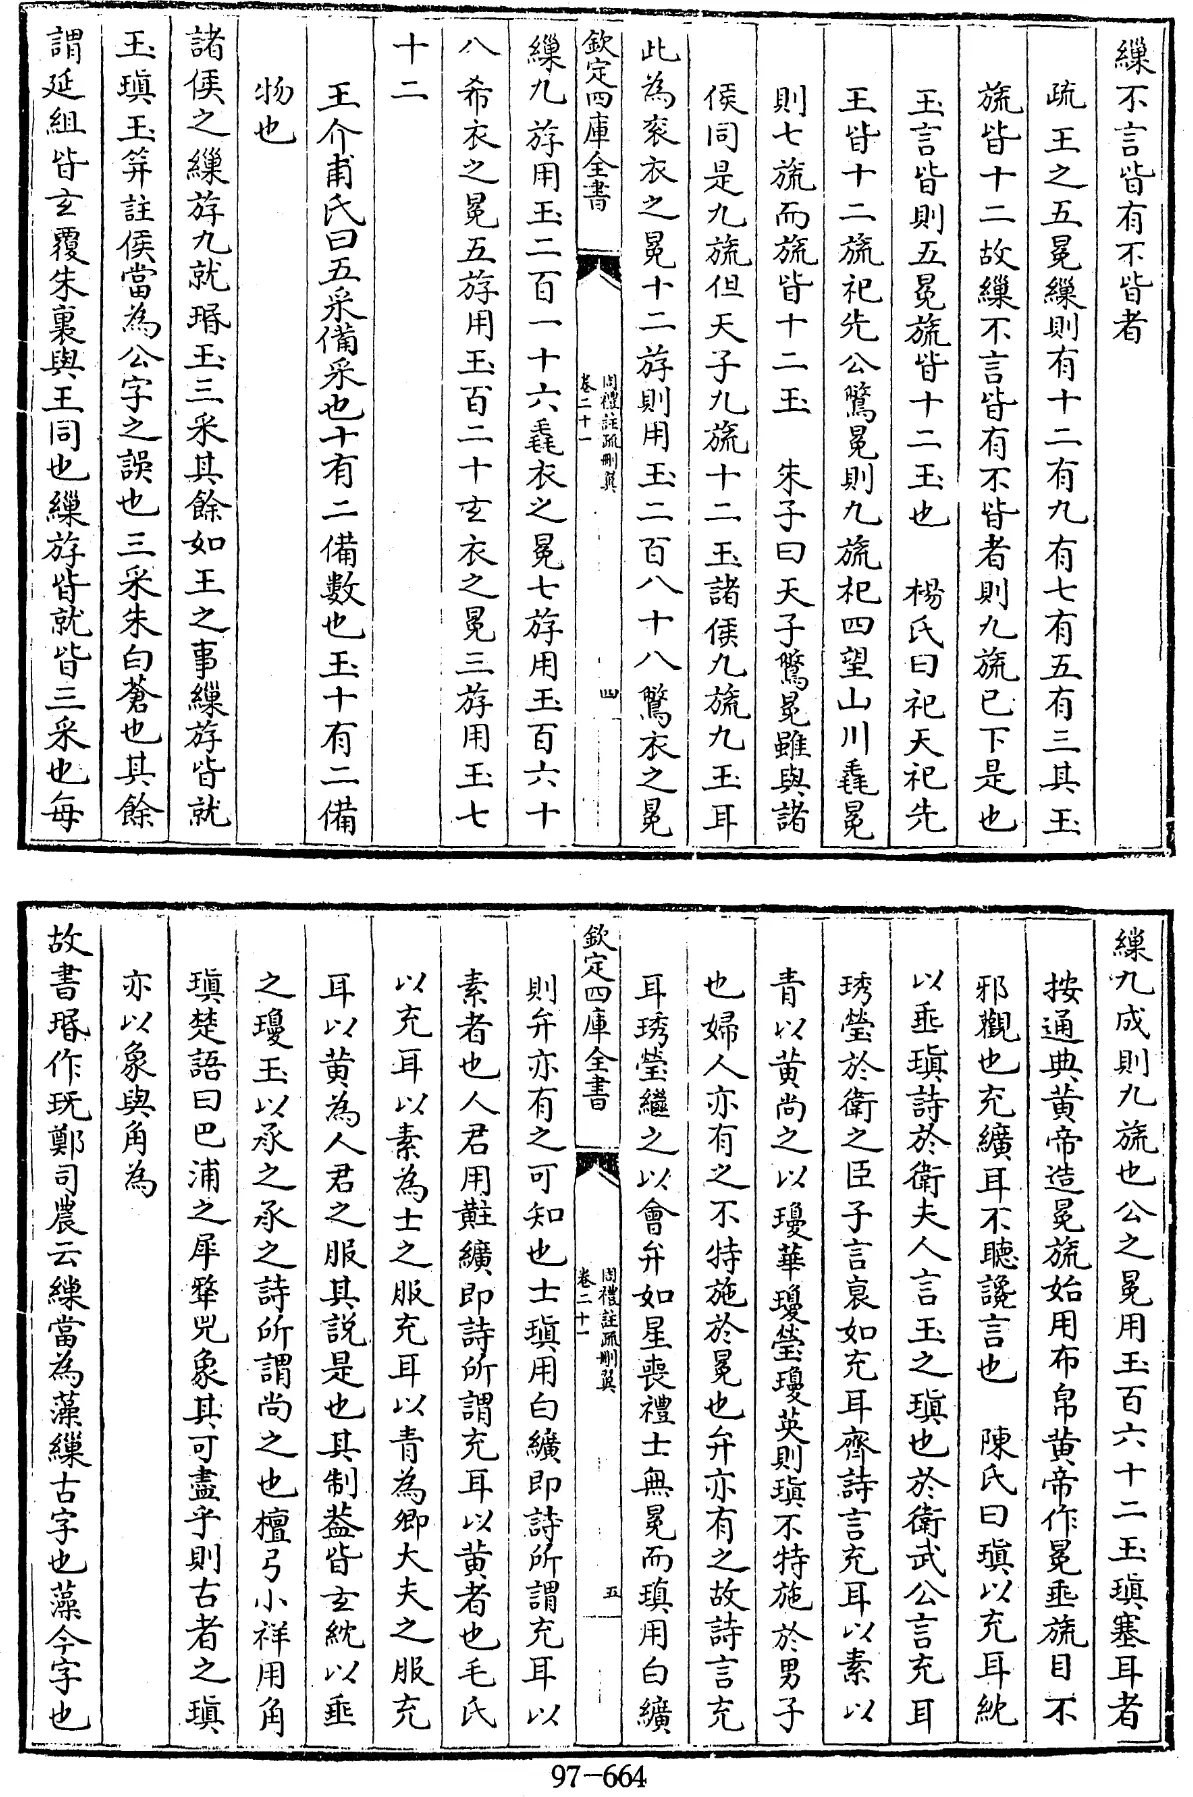 繅不言皆有不皆者
疏王之五冕繅則有十二有九有七有五有三其玉
旒皆十二故繅不言皆有不皆者則九旒已下是也
玉言皆則五冕旒皆十二玉也　楊氏曰祀天祀先
王皆十二旒祀先公鷩冕則九旒祀四望山川毳冕
則七旒而旒皆十二玉　朱子曰天子鷩冕雖與諸
侯同是九旒但天子九旒十二玉諸侯九旒九玉耳
此為衮衣之冕十二斿則用玉二百八十八鷩衣之冕
欽定四庫全書
周禮註疏刪翼
卷二十一
四
繅九斿用玉二百一十六毳衣之冕七斿用玉百六十
八希衣之冕五斿用玉百二十玄衣之冕三斿用玉七
十二
王介甫氏曰五采備采也十有二備數也玉十有二備
物也
諸侯之繅斿九就瑉玉三采其餘如王之事繅斿皆就
玉瑱玉筓註侯當為公字之誤也三采朱白蒼也其餘
謂延組皆玄覆朱裏與王同也繅斿皆就皆三采也每
繅九成則九旒也公之冕用玉百六十二玉瑱塞耳者
按通典黄帝造冕旒始用布帛黄帝作冕垂旒目不
邪觀也充纊耳不聽讒言也　陳氏曰瑱以充耳紞
以垂瑱詩於衛夫人言玉之瑱也於衛武公言充耳
琇瑩於衛之臣子言裒如充耳齊詩言充耳以素以
青以黄尚之以瓊華瓊瑩瓊英則瑱不特施於男子
也婦人亦有之不特施於冕也弁亦有之故詩言充
耳琇瑩繼之以會弁如星喪禮士無冕而瑱用白纊
欽定四庫全書
周禮註疏刪翼
卷二十一
五
則弁亦有之可知也士瑱用白纊即詩所謂充耳以
素者也人君用黈纊即詩所謂充耳以黄者也毛氏
以充耳以素為士之服充耳以青為卿大夫之服充
耳以黄為人君之服其説是也其制葢皆玄紞以垂
之瓊玉以承之承之詩所謂尚之也檀弓小祥用角
瑱楚語曰巴浦之犀犛兕象其可盡乎則古者之瑱
亦以象與角為
故書瑉作玩鄭司農云繅當為藻繅古字也藻今字也
97-664